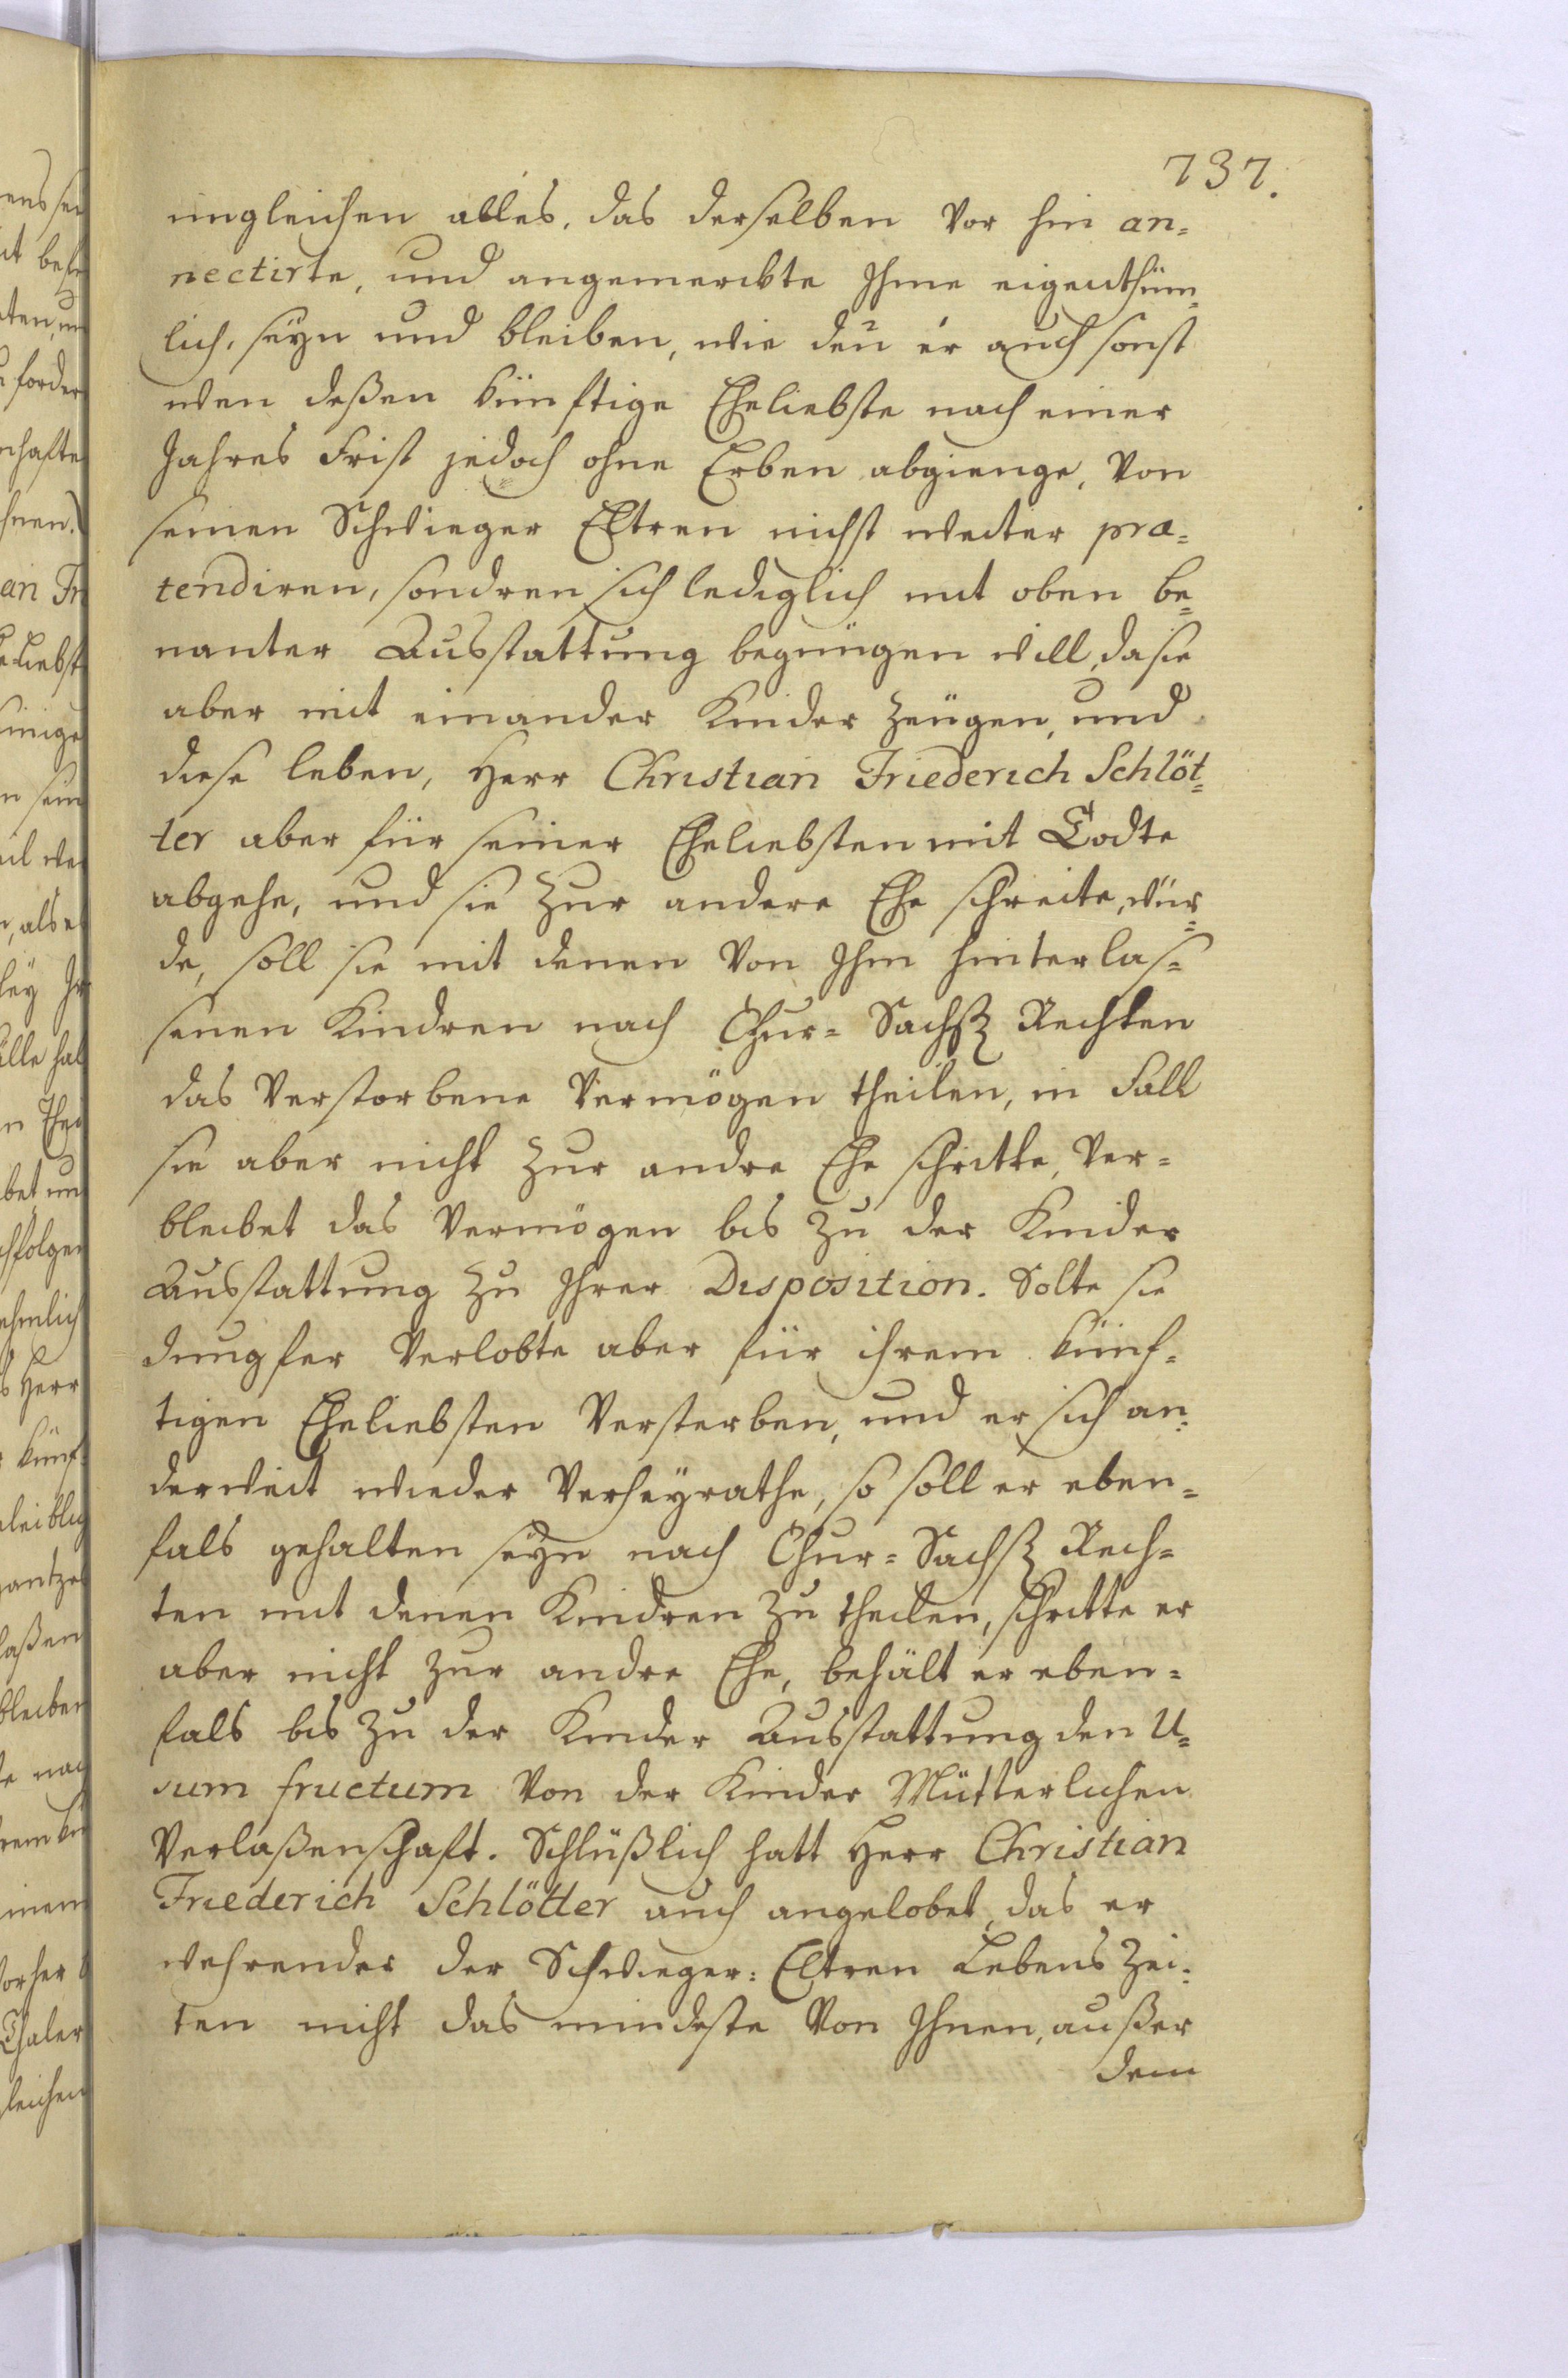 737.
imgleichen alles, das derselben vor hin an=
nectirte, und angemerckte Ihme eigenthüm=
lich, seyn und bleiben, wie deñ er auch sonst
wen deßen künftige Eheliebste nach einer
Jahres Frist jedoch ohne Erben abgienge, von
seinen Schwieger Eltren nichst weiter præ=
tendiren, sondren sich lediglich mit oben be=
nanter Ausstattung begnügen will, da sie
aber mit einander Kinder zeugen, und
diese leben, Herr Christian Friederich Schlöt=
ter aber für seiner Eheliebsten mit Todte
abgehe, und sie zur andere Ehe schreite, wür=
de, soll sie mit denen von Ihm hinterlas=
senen Kindren nach Chur= Sachß Rechten
das verstorbene Vermögen theilen, in Fall
sie aber nicht zur andre Ehe schritte, ver=
bleibet das Vermögen bis zu der Kinder
Ausstattung zu Ihrer Disposition. Solte sie
Jungfer Verlobte aber für ihrem künf=
tigen Eheliebsten versterben, und er sich an=
derweit wieder verheyrathe, so soll er eben=
fals gehalten seyn nach Chur= Sachß Rech=
ten mit denen Kindren zu theilen, schritte er
aber nicht zur andre Ehe, behält er eben=
fals bis zu der Kinder Ausstattung den U=
sum fructum von der Kinder Mütterlichen
Verlaßenschaft. Schlüßlich hatt Herr Christian
Friederich Schlötter auch angelobet, das er
wehrender der Schwieger= Eltren Lebens Zei=
ten nicht das mindeste von Ihnen, außer
dem